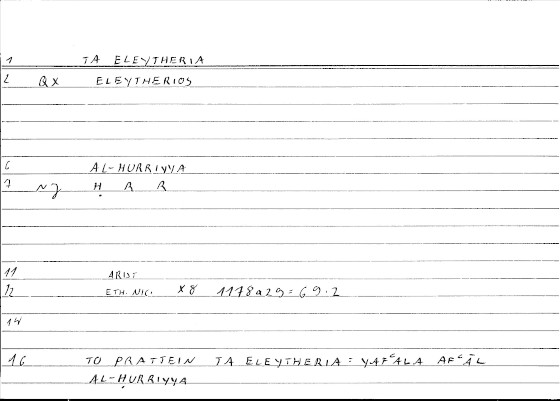 1 TA ELEYTHERIA
2 QX ELEYTHERIOS
6 AL-HURRIYYA
7 NJ Ḥ R R
11 ARIST
12 ETH. NIC. X8 1178a29 = 69.2
14
16 TO PRATTEIN TA ELEYTHERIA : YAFʿALA AFʿĀL
AL-ḤURRIYYA